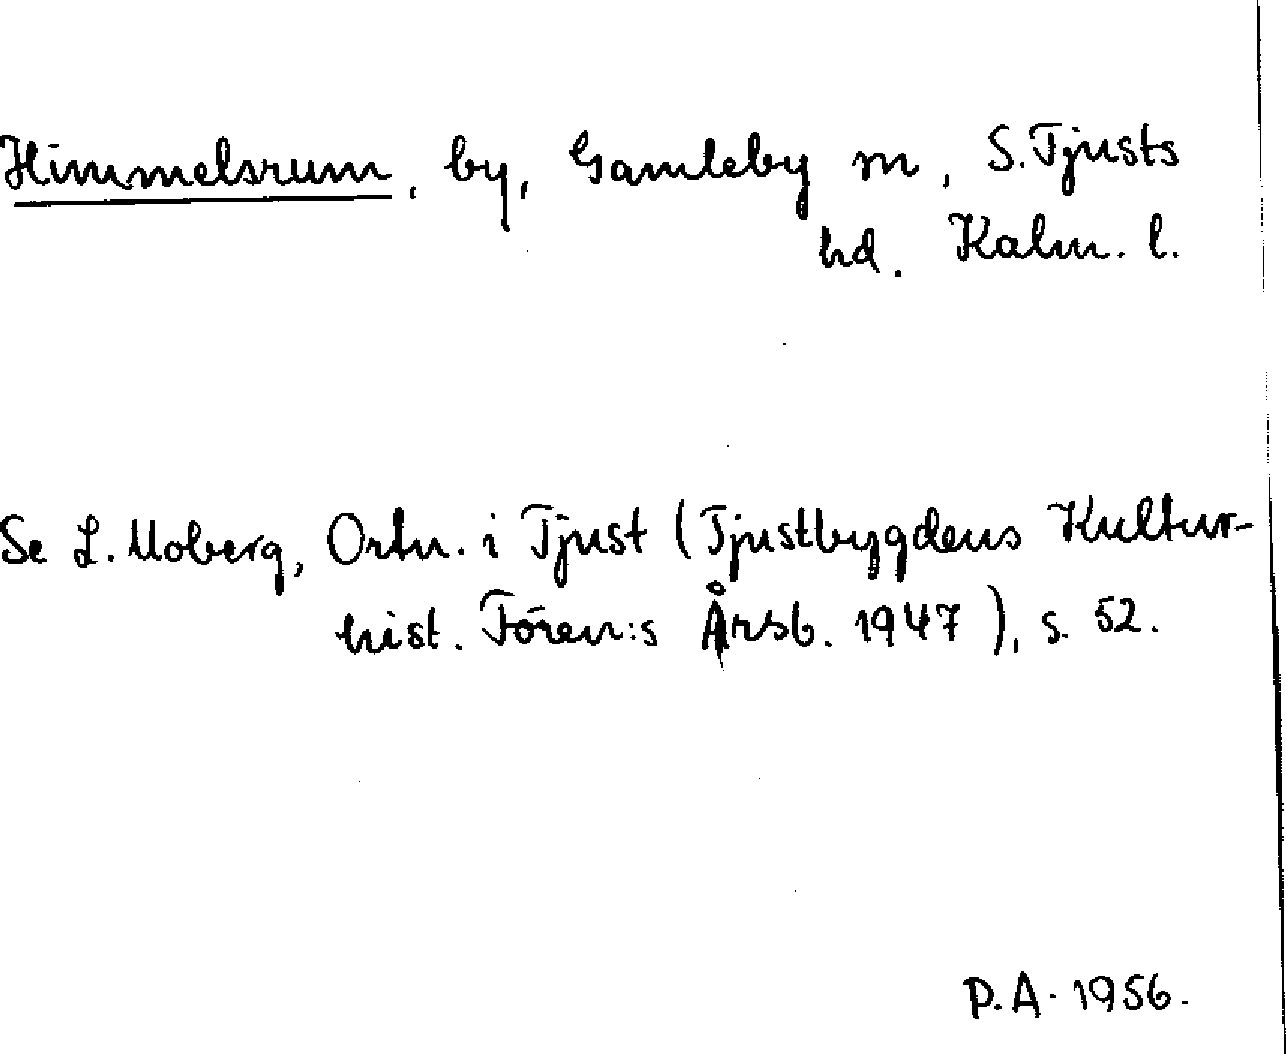 Himmelsrum, by, Gamleby sn, S. Tjusts
hd. Kalm. l.
Se L. Moberg, Ortn. i Tjust (Tjustbygdens Kultur-
hist. Fören:s Årsb. 1947), s. 52.
P.A. 1956.